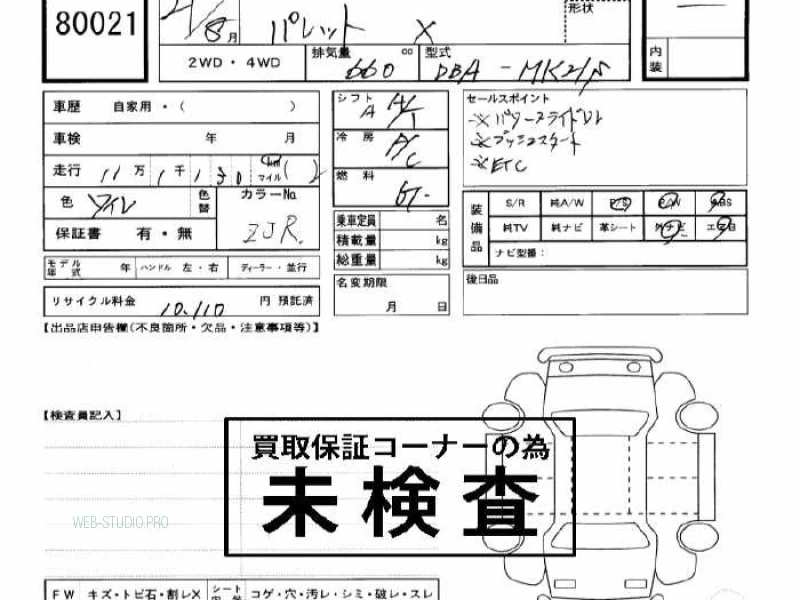 80021
21/8月 パレット X
形状
内装
2WD・4WD
排気量 660 cc
型式 DBA-MK21S
車歴 自家用・( )
車検 年 月
走行 11万1千1 30 km マイル ( )
色 ワイン 色替
カラーNo ZJR
保証書 有・無
モデル年式 年 ハンドル 左・右 ディーラー・並行
リサイクル料金 10,110 円 預託済
シフト A A/T
冷房 A/C
燃料
乗車定員 名
積載量 kg
総重量 kg
名変期限 月 日
セールスポイント
※パワースライドドア
※プッシュスタート
※ETC
装備品 S/R 純A/W P/S P/W ABS
純TV 純ナビ 革シート 外ナビ エアB
ナビ型番:
後日品
【出品店申告欄(不良箇所・欠品・注意事項等)】
【検査員記入】
買取保証コーナーの為
未検査
WEB-STUDIO.PRO
FW キズ・トビ石・割レX
シート コゲ・穴・汚レ・シミ・破レ・スレ